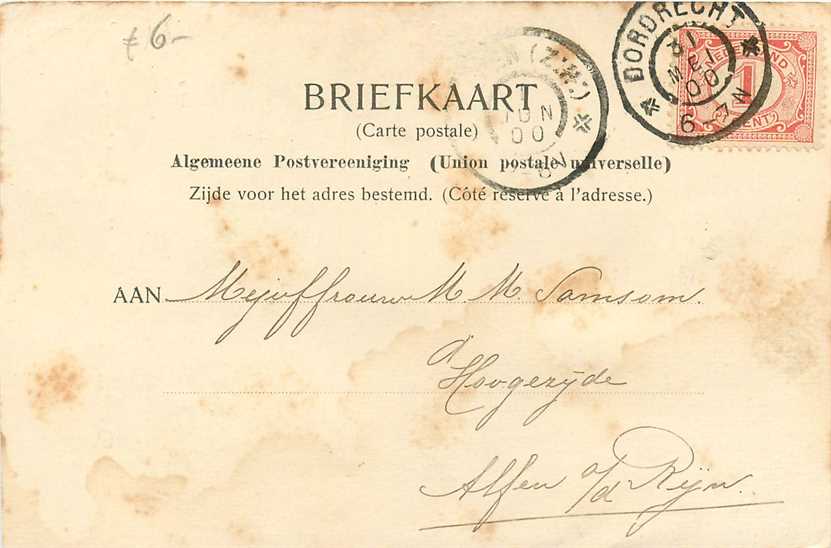 £ 6.-
DORDRECHT
31 MEI 00
6-7N
NEDERLAND
1
CENT
(Z:H:)
JUN
00
-8V
BRIEFKAART
(Carte postale)
Algemeene Postvereeniging (Union postale universelle)
Zijde voor het adres bestemd. (Côté réservé à l'adresse.)
AAN Mejuffrouw M. M. Samsom.
a
Hoogezijde
Alfen a/d Rijn.